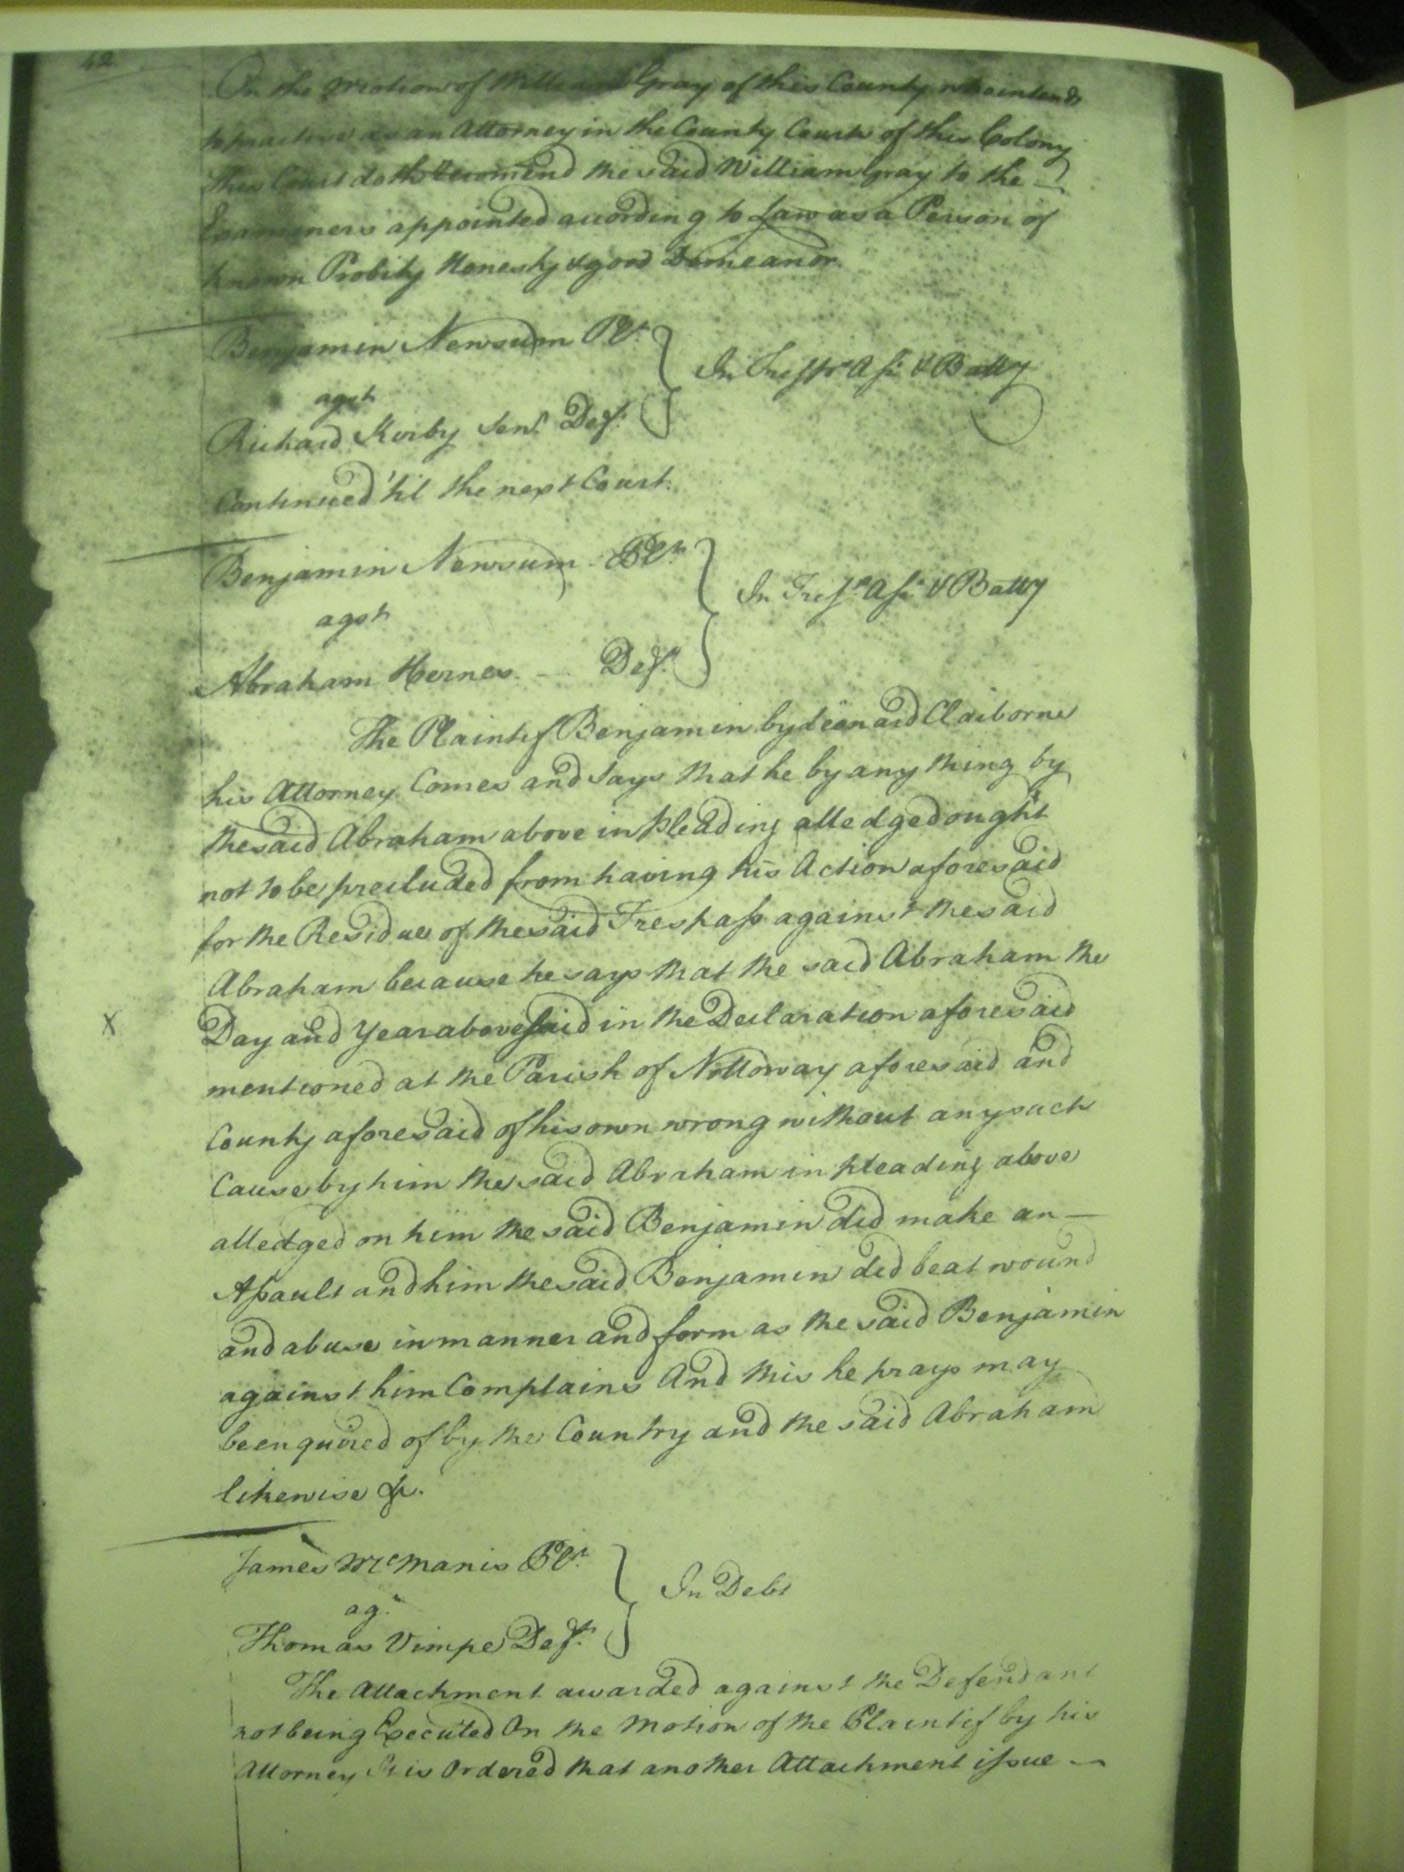 42
On the motion of William Gray of this County who intends
to practice as an Attorney in the County Courts of this Colony
This Court doth Recomend the said William Gray to the
Examiners appointed according to Law as a Person of
known Probity Honesty & good Demeanor.
Benjamin Newsum Plt.
agst
Richard Kirby Senr. Deft.
In Tresps. Asst. & Batty
Continued 'til the next Court.
Benjamin Newsum Plt.
agst
Abraham Hernes. Deft.
In Tresps. Asst. & Batty
The Plaintif Benjamin by Leonard Claiborne
his Attorney Comes and Says that he by any thing by
the said Abraham above in pleading alledged ought
not to be precluded from having his Action aforesaid
for the Residue of the said Trespass against the said
Abraham because he says that the said Abraham the
Day and Year abovesaid in the Declaration aforesaid
X
mentioned at the Parish of Nottoway aforesaid and
County aforesaid of his own wrong without any such
Cause by him the said Abraham in pleading above
alledged on him the said Benjamin did make an
Assault and him the said Benjamin did beat wound
and abuse in manner and form as the said Benjamin
against him Complains And this he prays may
be enquired of by the Country and the said Abraham
likewise &c.
James McManis Plt.
ag.
Thomas Vimpe Deft.
In Debt
The Attachment awarded against the Defendant
not being Executed On the Motion of the Plaintif by his
Attorney It is Ordered that another Attachment issue